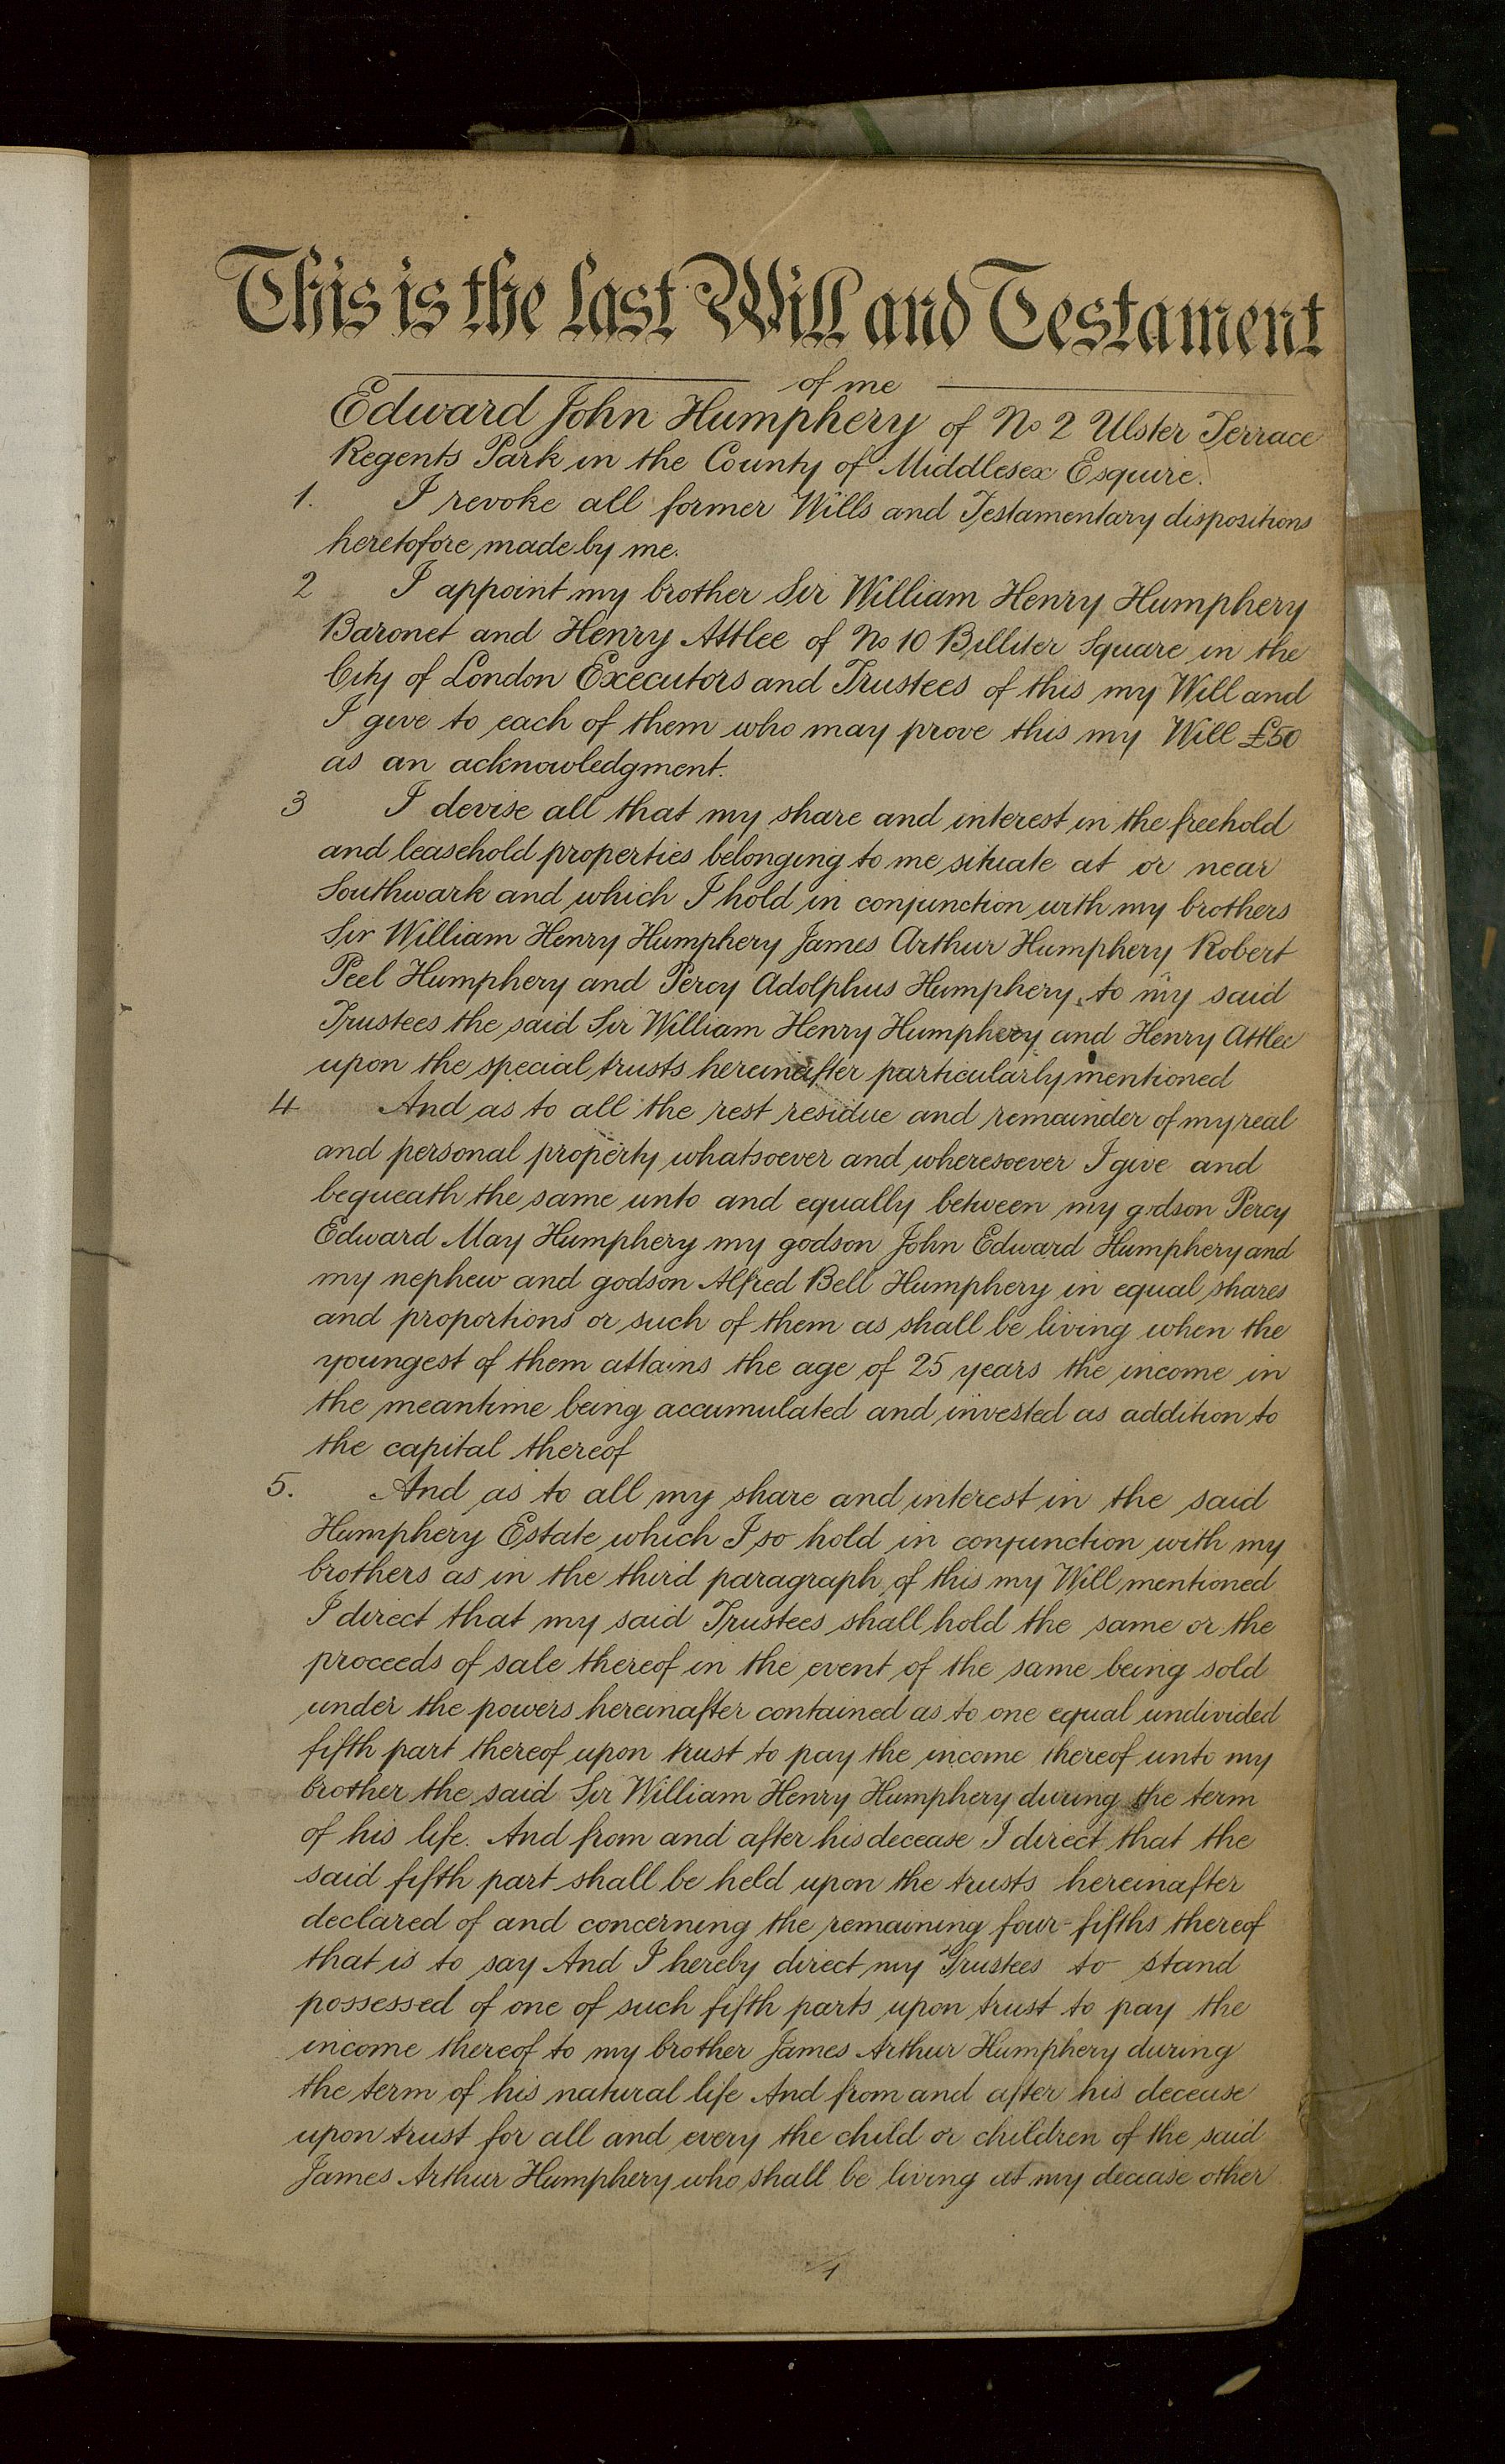 This is the last Will and Testament
of me
Edward John Humphery of No 2 Ulster Terrace
Regents Park in the County of Middlesex Esquire.
1. I revoke all former Wills and Testamentary dispositions
heretofore made by me.
2 I appoint my brother Sir William Henry Humphery
Baronet and Henry Attlee of No 10 Billiter Square in the
City of London Executors and Trustees of this my Will and
I give to each of them who may prove this my Will £50
as an acknowledgment.
3 I devise all that my share and interest in the freehold
and leasehold properties belonging to me situate at or near
Southwark and which I hold in conjunction with my brothers
Sir William Henry Humphery James Arthur Humphery Robert
Peel Humphery and Percy Adolphus Humphery to my said
Trustees the said Sir William Henry Humphery and Henry Attlee
upon the special trusts hereinafter particularly mentioned
4 And as to all the rest residue and remainder of my real
and personal property whatsoever and wheresoever I give and
bequeath the same unto and equally between my godson Percy
Edward May Humphery my godson John Edward Humphery and
my nephew and godson Alfred Bell Humphery in equal shares
and proportions or such of them as shall be living when the
youngest of them attains the age of 25 years the income in
the meantime being accumulated and invested as addition to
the capital thereof
5. And as to all my share and interest in the said
Humphery Estate which I so hold in conjunction with my
brothers as in the third paragraph of this my Will mentioned
I direct that my said Trustees shall hold the same or the
proceeds of sale thereof in the event of the same being sold
under the powers hereinafter contained as to one equal undivided
fifth part thereof upon trust to pay the income thereof unto my
brother the said Sir William Henry Humphery during the term
of his life. And from and after his decease I direct that the
said fifth part shall be held upon the trusts hereinafter
declared of and concerning the remaining four-fifths thereof
that is to say And I hereby direct my Trustees to stand
possessed of one of such fifth parts upon trust to pay the
income thereof to my brother James Arthur Humphery during
the term of his natural life And from and after his decease
upon trust for all and every the child or children of the said
James Arthur Humphery who shall be living at my decease other
1